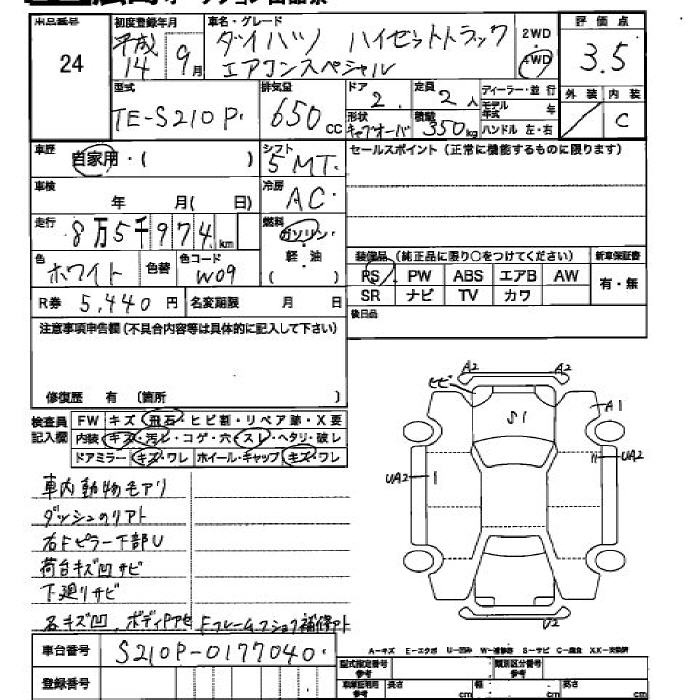 出品番号 初度登録年月 車名・グレード 評価点
24 平成14 9月 ダイハツ ハイゼットトラック 2WD 4WD 3.5
エアコンスペシャル
型式 排気量 ドア 定員 ディーラー・並行 外装 内装
TE-S210P 650cc 2 2人 モデル年式 年 C
形状 積載 ハンドル 左・右
キャブオーバ 350kg
車歴 自家用・( ) シフト 5MT セールスポイント(正常に機能するものに限ります)
車検 年 月( 日) 冷房 AC
走行 8万5千974km 燃料 ガソリン・軽油 ( )
色 ホワイト 色替 色コード W09
装備品(純正品に限り○をつけてください) 新車保証書
PS PW ABS エアB AW 有・無
SR ナビ TV カワ
R券 5,440円 名変期限 月 日 後日品
注意事項申告欄(不具合内容等は具体的に記入して下さい)
修復歴 有 (箇所 )
検査員記入欄 FW キズ・飛石・ヒビ割・リペア跡・X要
内装 キズ・汚レ・コゲ・穴・スレ・ヘタリ・破レ
ドアミラー キズ・ワレ ホイール・キャップ キズ・ワレ
A2 A2
ヒビ
S1 A1
UA2 UA2
U2
車内動物モアリ
ダッシュのリアト
右Fピラー下部U
荷台キズ凹サビ
下廻りサビ
小キズ凹、ボディPアセ Fフレーム 補修アト
A-キズ E-エクボ U-凹み W-補修跡 S-サビ C-腐食 XX-交換済
車台番号 S210P-0177040
登録番号
型式指定番号 参考 類別区分番号 参考
車庫証明用 参考 長さ cm 幅 cm 高さ cm